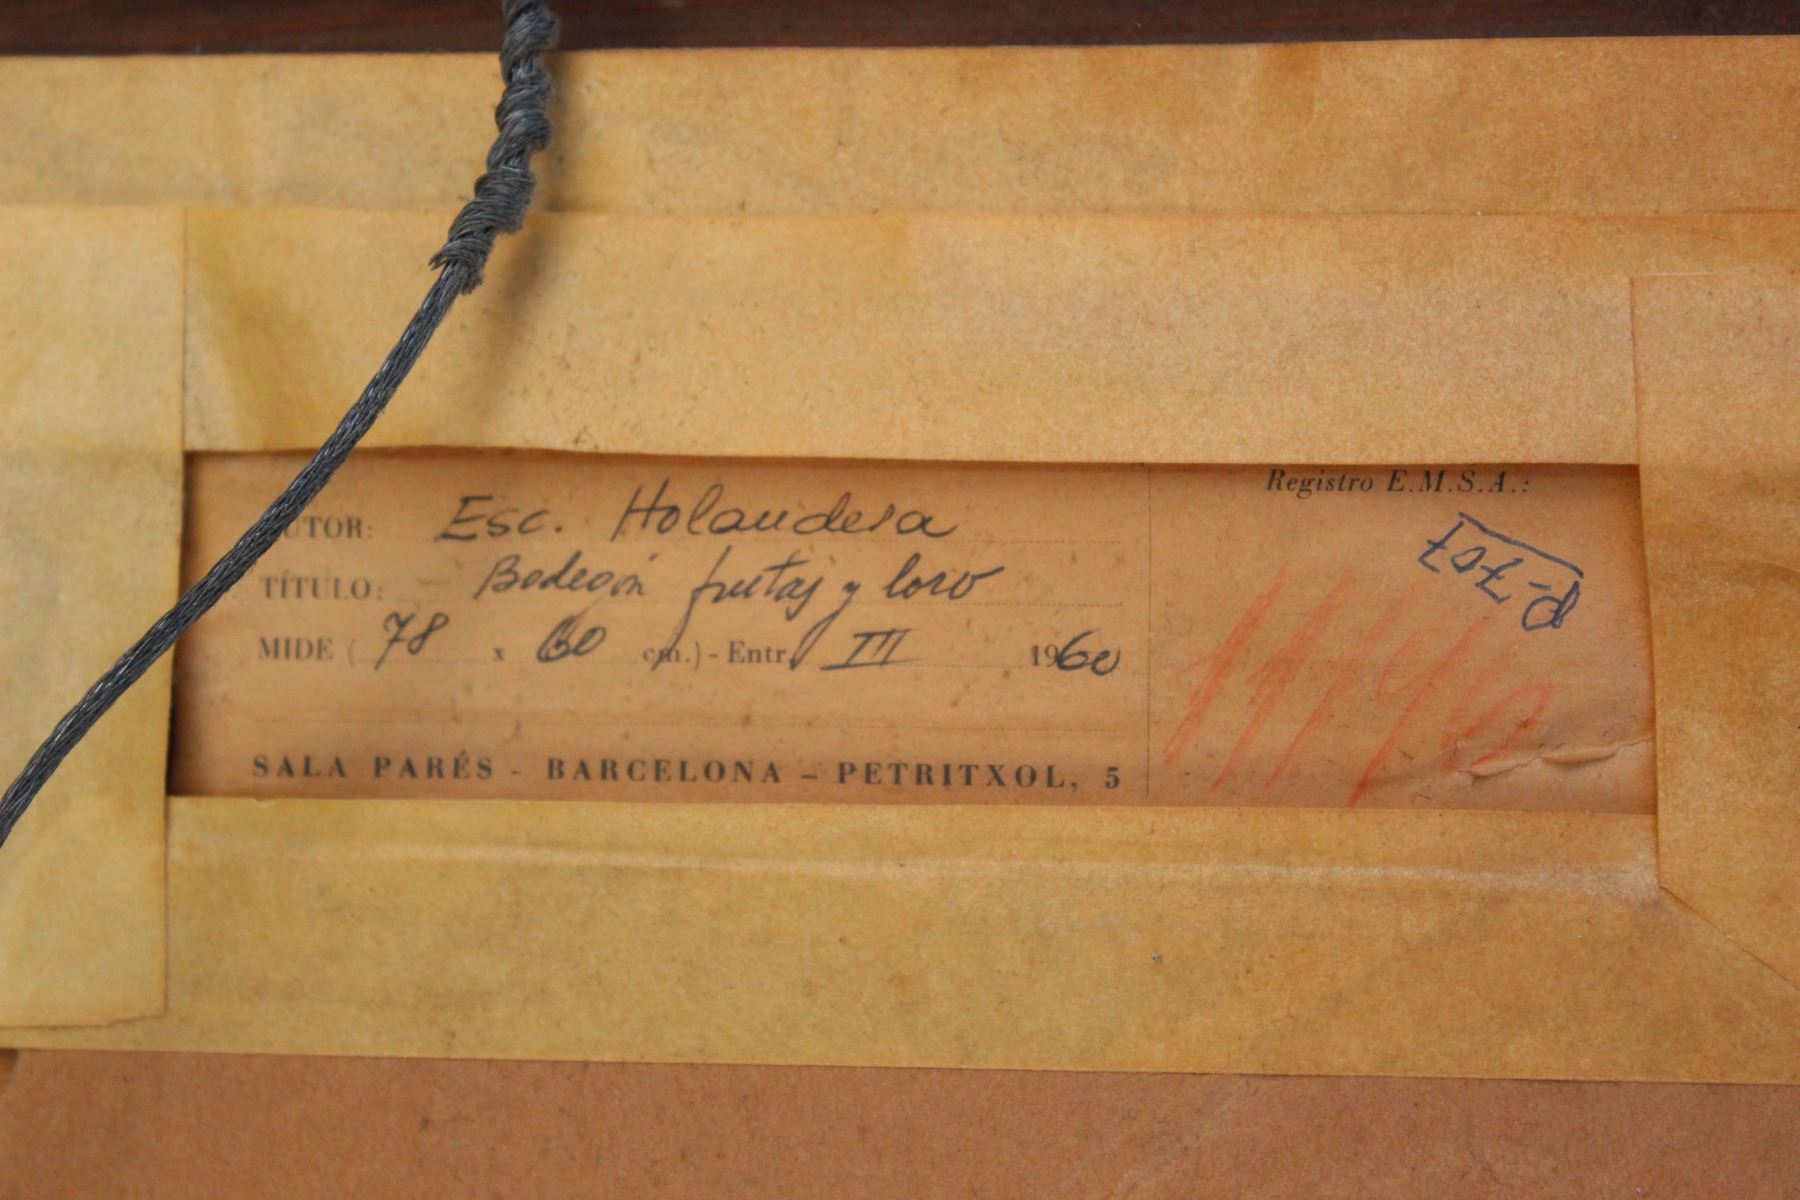 Registro E.M.S.A.:
AUTOR: Esc. Holandesa
P-707
TÍTULO: Bodegón frutas y loro
MIDE ( 78 x 60 cm.) - Entr. III 1960
SALA PARÉS - BARCELONA - PETRITXOL, 5